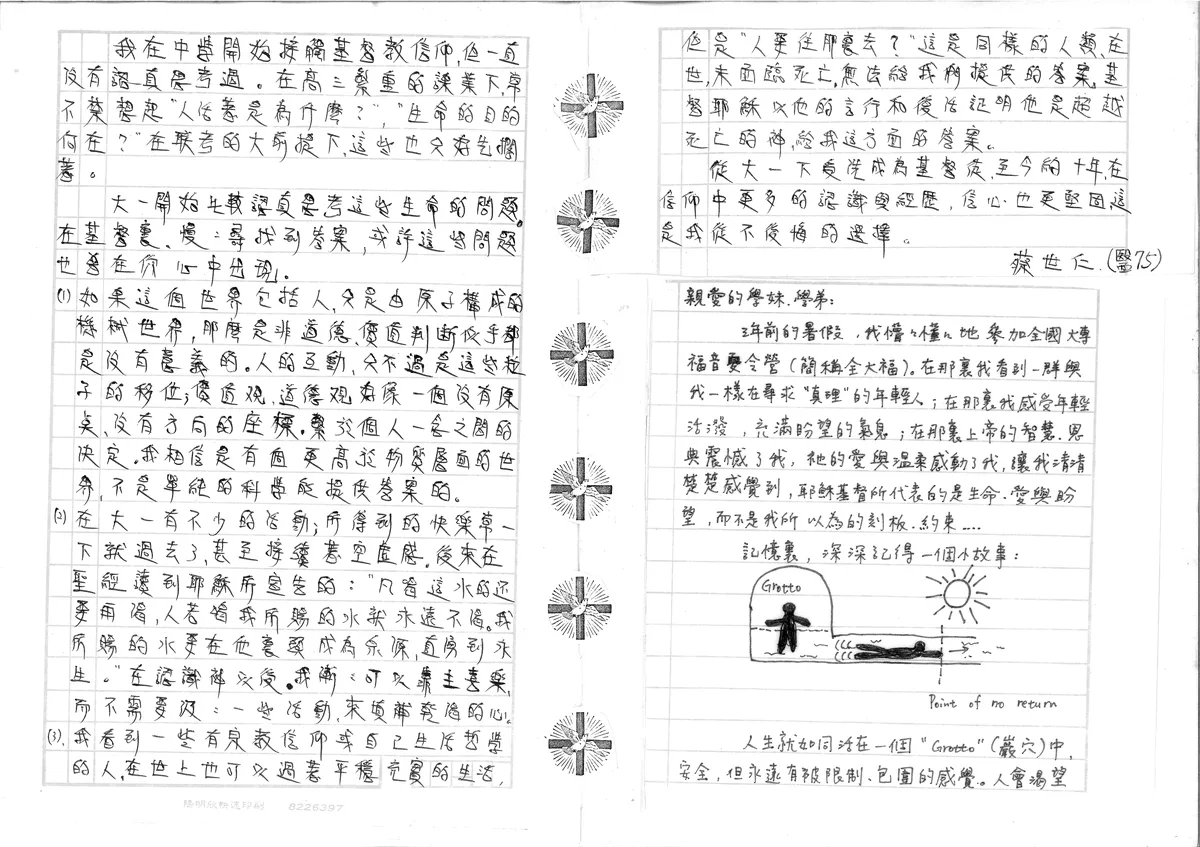 我在中學開始接觸基督教信仰,但一直
沒有認真思考過。在高三繁重的課業下,常
不禁想起"人活著是為什麼?","生命的目的
何在?"在联考的大前提下,這些也只好先擱
著。
大一開始比較認真思考這些生命的問題。
在基督裏、慢:尋找到答案,或許這些問題
也曾在你心中出現。
(1) 如果這個世界包括人,只是由原子構成的
機械世界,那麼是非道德、價值判断似乎都
是沒有意義的。人的互動,只不過是這些粒
子的移位;價值观、道德观好像一個沒有原
點、沒有方向的座標。繫於個人一念之間的
決定。我相信是有個更高於物質層面的世
界,不是單純的科學能提供答案的。
(2) 在大一有不少的活動;所得到的快樂常一
下就過去了,甚至接續著空虛感。後來在
聖經讀到耶穌所宣告的:"凡喝這水的还
要再渴,人若喝我所賜的水就永遠不渴。我
所賜的水要在他裏頭成為泉源,直湧到永
生。"在認識祂以後。我漸:可以靠主喜樂,
而不需要 : 一些活動,來填補 的心。
(3). 我看到一些有宗教信仰或自己生活哲學
的人,在世上也可以過著平穩充實的生活,
陽明 快速印刷 8226397
但是"人要往那裏去?"這是同樣的人類,在
世,未面臨死亡,無法給我們提供的答案,基
督耶穌以他的言行和復活証明他是超越
死亡的神,給我這方面的答案。
從大一下受洗成為基督徒,至今的十年,在
信仰中更多的認識與經歷,信心也更堅固,這
是我從不後悔的選擇。
蔡世仁.(醫75)
親愛的學妹.學弟:
3年前的暑假,我懵々懂々地參加全國大專
福音夏令營(簡稱全大福)。在那裏我看到一群與
我一樣在尋求"真理"的年輕人;在那裏我感受年輕
活潑,充滿盼望的氣息;在那裏上帝的智慧.恩
典震憾了我,祂的愛與溫柔感動了我,讓我清清
楚楚感覺到,耶穌基督所代表的是生命.愛與盼
望,而不是我所以為的刻板.約束....
記憶裏,深深記得一個小故事:
Grotto
Point of no return
人生就如同活在一個"Grotto"(巖穴)中,
安全,但永遠有被限制、包圍的感覺。人會渴望